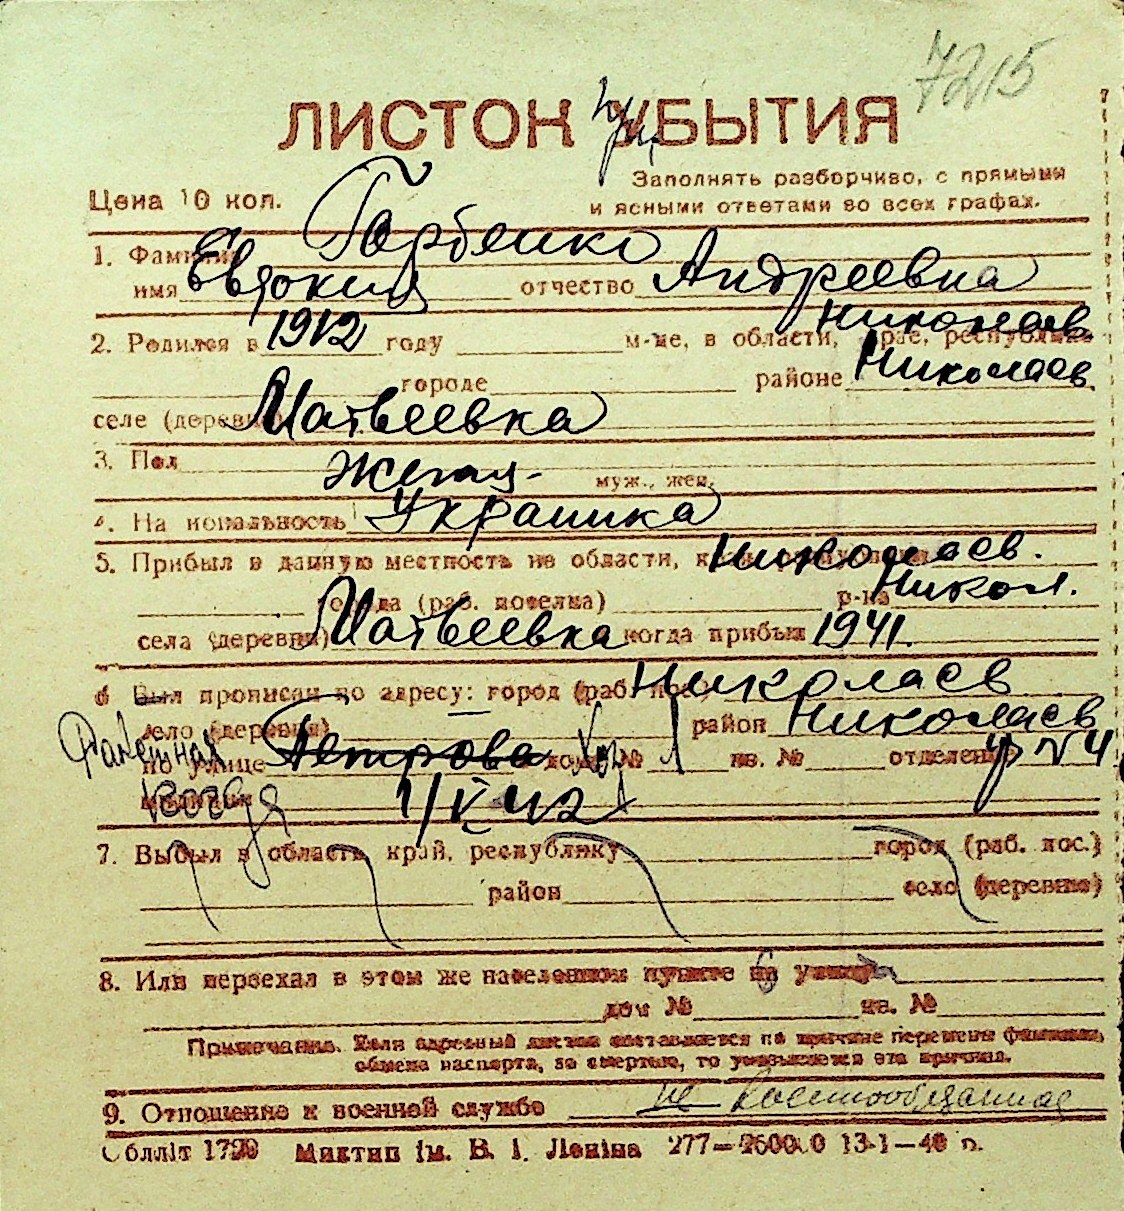 7215
ЛИСТОК УБЫТИЯ
Цена 10 коп.
Заполнять разборчиво, с прямыми
и ясными ответами во всех графах.
1. Фамилия Горбенко
имя Евдокия отчество Андреевна
2. Родился в 1912 году м-це, в области, крае, республике Николаев
городе районе Николаев
селе (деревне) Матвеевка
3. Пол женщ. муж., жен.
4. Национальность Украинка
5. Прибыл в данную местность из области, Николаев.
города (раб. поселка) р-на Никол.
села (деревни) Матвеевка когда прибыл 1941.
6 Был прописан по адресу: город (раб. пос.) Николаев
село (деревня) район Николаев
по улице Петрова дом № кв. № отделение № 4
1/V 42
7. Выбыл в область, край, республику город (раб. пос.)
район село (деревню)
8. Или переехал в этом же населенном пункте на улицу
дом № кв. №
Примечание. Если адресный листок составляется по причине перемены фамилии,
обмена паспорта, за смертью, то указывается эта причина.
9. Отношение к военной службе не военнообязанная
Облліт 1729 Миктип ім. В. І. Леніна 277—260000 13-1—40 р.